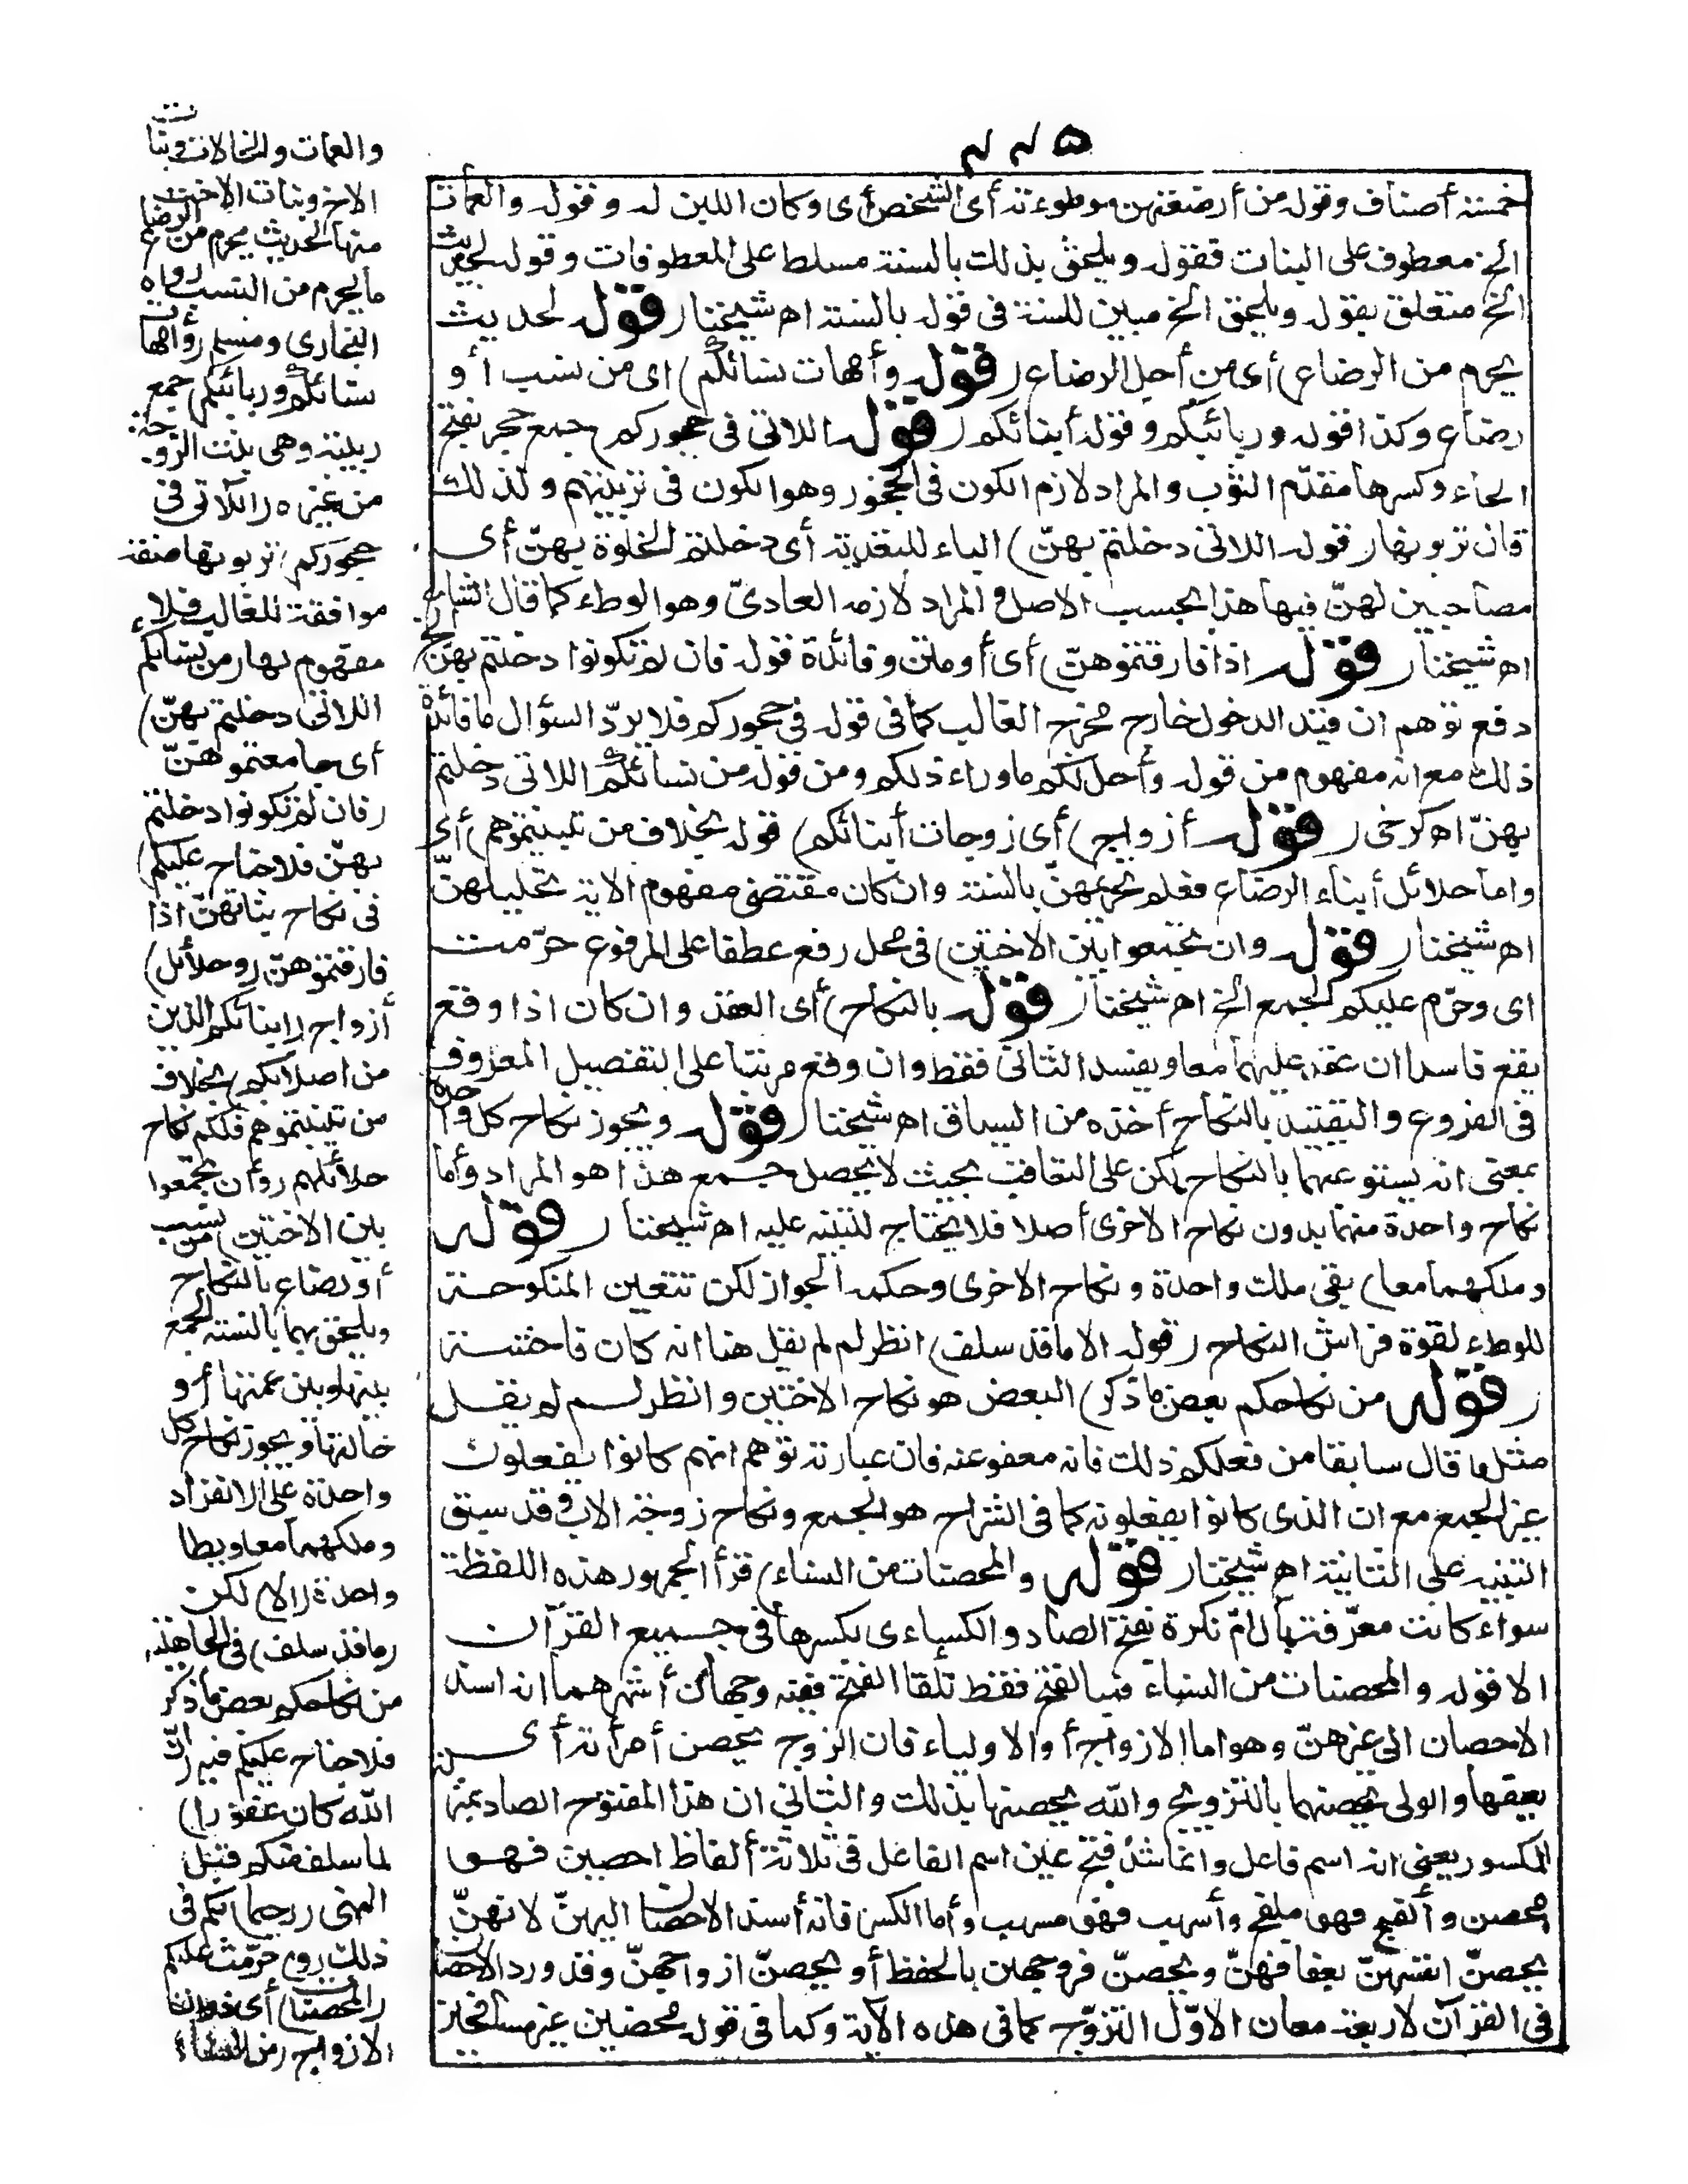 ٤٤٥
خمسة أصناف وقوله من أرضعتهن موطوءته أى الشخص أى وكان اللبن له وقوله والعمات
الخ معطوف على البنات فقوله ويلحق بذلك بالسنة مسلط على المعطوفات وقوله لحديث
الخ متعلق بقوله ويلحق الخ مبين للسنة فى قوله بالسنة اه شيخنا (قوله لحديث
يحرم من الرضاع) أى من أجل الرضاع (قوله وأمهات نسائكم) اى من نسب أو
رضاع وكذا قوله وربائبكم وقوله أبنائكم (قوله اللاتى فى حجوركم) جمع حجر بفتح
الحاء وكسرها مقدّم الثوب والمراد لازم الكون فى الحجور وهو الكون فى تربيتهم ولذلك
قال تربونها (قوله اللاتى دخلتم بهنّ) الباء للتعدية أى دخلتم الخلوة بهنّ أى
مصاحبين لهنّ فيها هذا بحسب الاصل والمراد لازمه العادىّ وهو الوطء كما قال الشارح
اه شيخنا (قوله اذا فارقتموهنّ) أى أو متن وفائدة قوله فان لم تكونوا دخلتم بهنّ الخ
دفع توهم ان قيد الدخول خارج مخرج الغالب كما فى قوله فى حجوركم فلا يردّ السؤال ما فائدة
ذلك مع انه مفهوم من قوله وأحل لكم ما وراء ذلكم ومن قوله من نسائكم اللاتى دخلتم
بهنّ اه كرخى (قوله أزواج) أى زوجات أبنائكم) قوله بخلاف من تبنيتموهم) أى
واما حلائل أبناء الرضاع فعلم تحريمهنّ بالسنة وان كان مقتضى مفهوم الاية تحليلهنّ
اه شيخنا (قوله وان تجمعوا بين الاختين) فى محل رفع عطفا على المرفوع حرّمت
اى وحرّم عليكم الجمع الخ اه شيخنا (قوله بالنكاح) أى العقد وان كان اذا وقع
يقع فاسدا ان عقد عليهما معا ويفسد الثانى فقط وان وقع مرتبا على التفصيل المعروف
فى الفروع والتقييد بالنكاح أخذه من السياق اه شيخنا (قوله ويجوز نكاح كل واحدة
بمعنى انه يستوعبهما بالنكاح لكن على التعاقب بحيث لا يحصل جمع هذا هو المراد وأما
نكاح واحدة منهما بدون نكاح الاخرى أصلا فلا يحتاج للتنبيه عليه اه شيخنا (قوله
وملكهما معا) بقى ملك واحدة ونكاح الاخرى وحكمه الجواز لكن تتعين المنكوحة
للوطء لقوة فراش النكاح (قوله الا ما قد سلف) انظر لم لم يقل هنا انه كان فاحشة
(قوله من نكاحكم بعض ما ذكر) البعض هو نكاح الاختين وانظر لم لم يقل
مثل ما قال سابقا من فعلكم ذلك فانه معفو عنه فان عبارته توهم انهم كانوا يفعلون
غير الجمع مع ان الذى كانوا يفعلونه كما فى الشراح هو الجمع ونكاح زوجة الاب وقد سبق
التنبيه على الثانية اه شيخنا (قوله والمحصنات من النساء) قرأ الجمهور هذه اللفظة
سواء كانت معرّفة بأل أم نكرة بفتح الصاد والكساءى بكسرها فى جميع القرآن
الا قوله والمحصنات من النساء فبالفتح فقط فأما الفتح ففيه وجهان أشهرهما انه اسند
الاحصان الى غيرهنّ وهو اما الازواج أو الاولياء فان الزوج يحصن امرأته أى
يعفها والولى يحصنها بالتزويج والله يحصنها بذلك والثانى ان هذا المفتوح الصاد بمنزلة
المكسور يعنى انه اسم فاعل وانما شذ فتح عين اسم الفاعل فى ثلاثة ألفاظ احصن فهو
محصن وألفج فهو ملفج وأسهب فهو مسهب وأما الكسر فانه أسند الاحصان اليهنّ لانهنّ
يحصنّ انفسهنّ بعفافهنّ ويحصنّ فروجهن بالحفظ أو يحصنّ ازواجهنّ وقد ورد الاحصان
فى القرآن لاربعة معان الاوّل التزوّج كما فى هذه الآية وكما فى قوله محصنين غير مسافحين
والعمات والخالات وبنات
الاخ وبنات الاخت
منها لحديث يحرم من الرضاع
ما يحرم من النسب رواه
البخارى ومسلم (وأمهات
نسائكم وربائبكم) جمع
ربيبة وهى بنت الزوجة
من غيره (اللاتى فى
حجوركم) تربونها صفة
موافقة للغالب فلا
مفهوم لها (من نسائكم
اللاتى دخلتم بهنّ)
أى جامعتموهنّ
(فان لم تكونوا دخلتم
بهنّ فلا جناح عليكم)
فى نكاح بناتهنّ اذا
فارقتموهنّ (وحلائل)
أزواج (ابنائكم الذين
من اصلابكم) بخلاف
من تبنيتموهم فلكم نكاح
حلائلهم (وأن تجمعوا
بين الاختين) من نسب
أو رضاع بالنكاح
ويلحق بهما بالسنة الجمع
بينها وبين عمتها أو
خالتها ويجوز نكاح كل
واحدة على الانفراد
وملكهما معا ويطا
واحدة (الا) لكن
(ما قد سلف) فى الجاهلية
من نكاحكم بعض ما ذكر
فلا جناح عليكم فيه (ان
الله كان غفورا)
لما سلف منكم قبل
النهى (رحيما) بكم فى
ذلك (و) حرّمت عليكم
(المحصنات) أى ذوات
الازواج (من النساء)